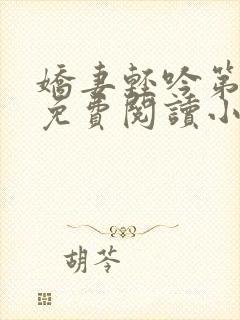 嬌妻輕吟第
免費閱讀小
胡苓